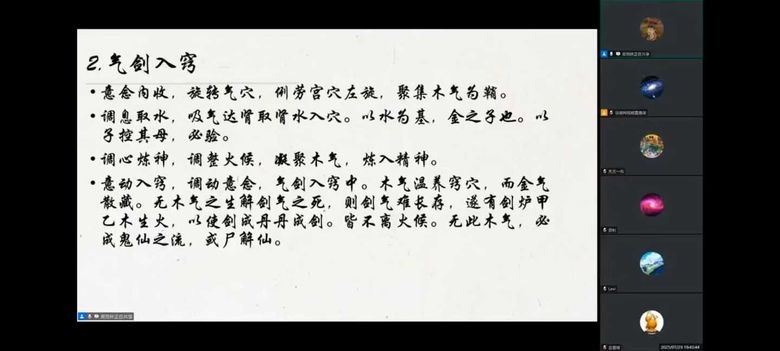 2.气剑入窍
• 意念内收，旋转气穴，俐劳宫穴左旋，聚集木气为鞘。
• 调息取水，吸气达肾取肾水入穴。以水为基，金之子也。以
子控其母，必验。
• 调心炼神，调整火候，凝聚木气，炼入精神。
• 意动入窍，调动意念，气剑入窍中。木气温养窍穴，而金气
散藏。无木气之生解剑气之死，则剑气难长存，遂有剑炉甲
乙木生火，以使剑成丹丹成剑。皆不离火候。无此木气，必
成鬼仙之流，或尸解仙。
Levi
2025/07/29 19:43:44